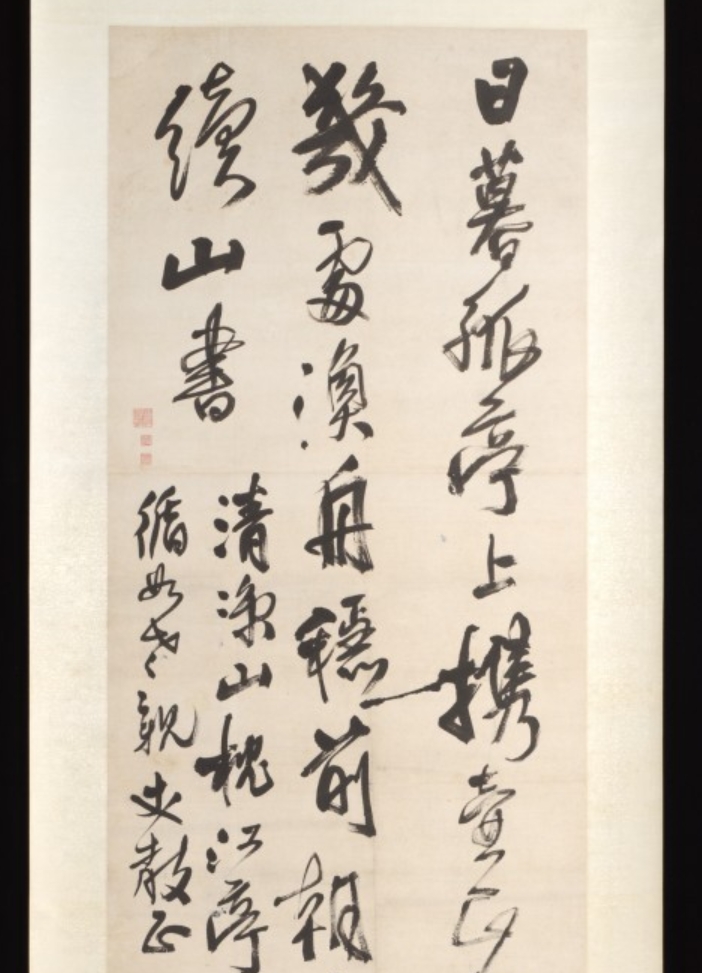 日暮孤亭上携壺
幾處漁舟穩前朝
續山書
清涼山
江亭
循如老親史教正